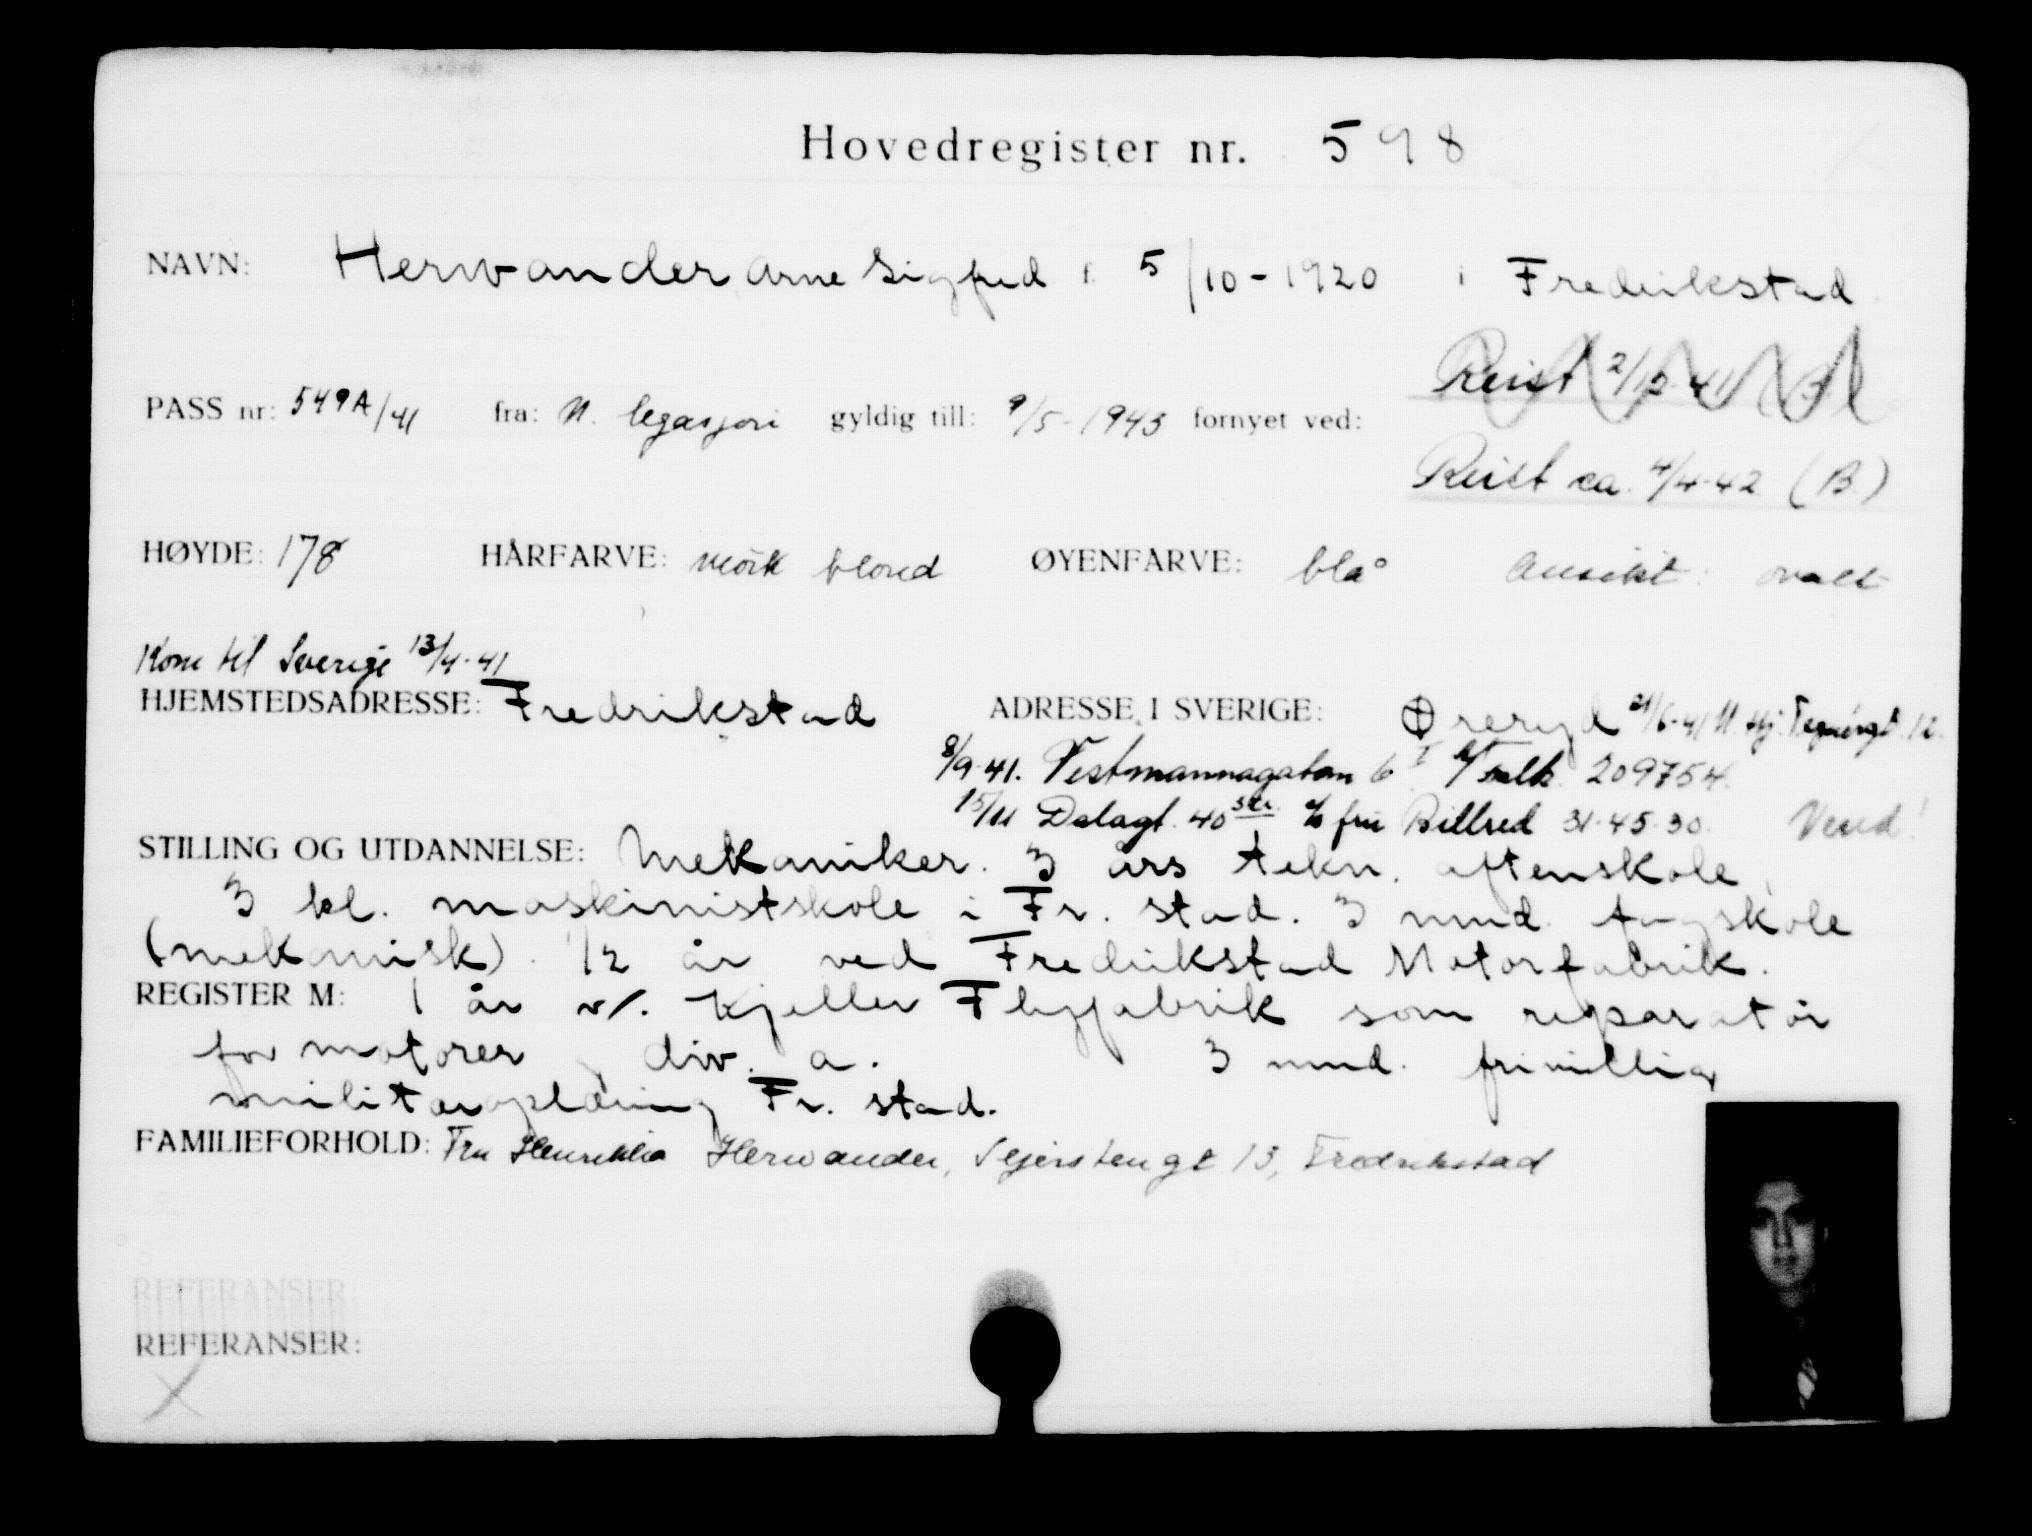 Hovedregister nr. 598
NAVN: Herwander Arne Sigfred f. 5/10-1920 i Fredrikstad
Reist 2/12-41 (B)
PASS nr: 549A/41 fra: N. legasjon gyldig till: 9/5-1943 fornyet ved:
Reist ca. 4/4-42 (B.)
HØYDE: 178 HÅRFARVE: mörk blond ØYENFARVE: blå Ansikt: ovalt
Kom til Sverige 13/4-41
HJEMSTEDSADRESSE: Fredrikstad ADRESSE I SVERIGE: Øreryd 21/6-41 N. Hj. Tegnérgt. 12.
8/9-41. Vestmannagatan 6 I c/o Falk. 209754.
15/11 Dalagt. 40 c/o fru Billred 31.45.30. Vend!
STILLING OG UTDANNELSE: Mekaniker. 3 års tekn. aftenskole,
3 kl. maskinistskole i Fr. stad. 3 mnd. fagskole
(mekanisk). 1/2 år ved Fredrikstad Motorfabrik.
REGISTER M: 1 år v/. Kjeller Flyfabrik som reparatör
for motorer, div. a. 3 mnd. frivillig
militæropläring Fr. stad.
FAMILIEFORHOLD: Fru Herwander, Sejerstengt 13, Fredrikstad
REFERANSER:
REFERANSER: